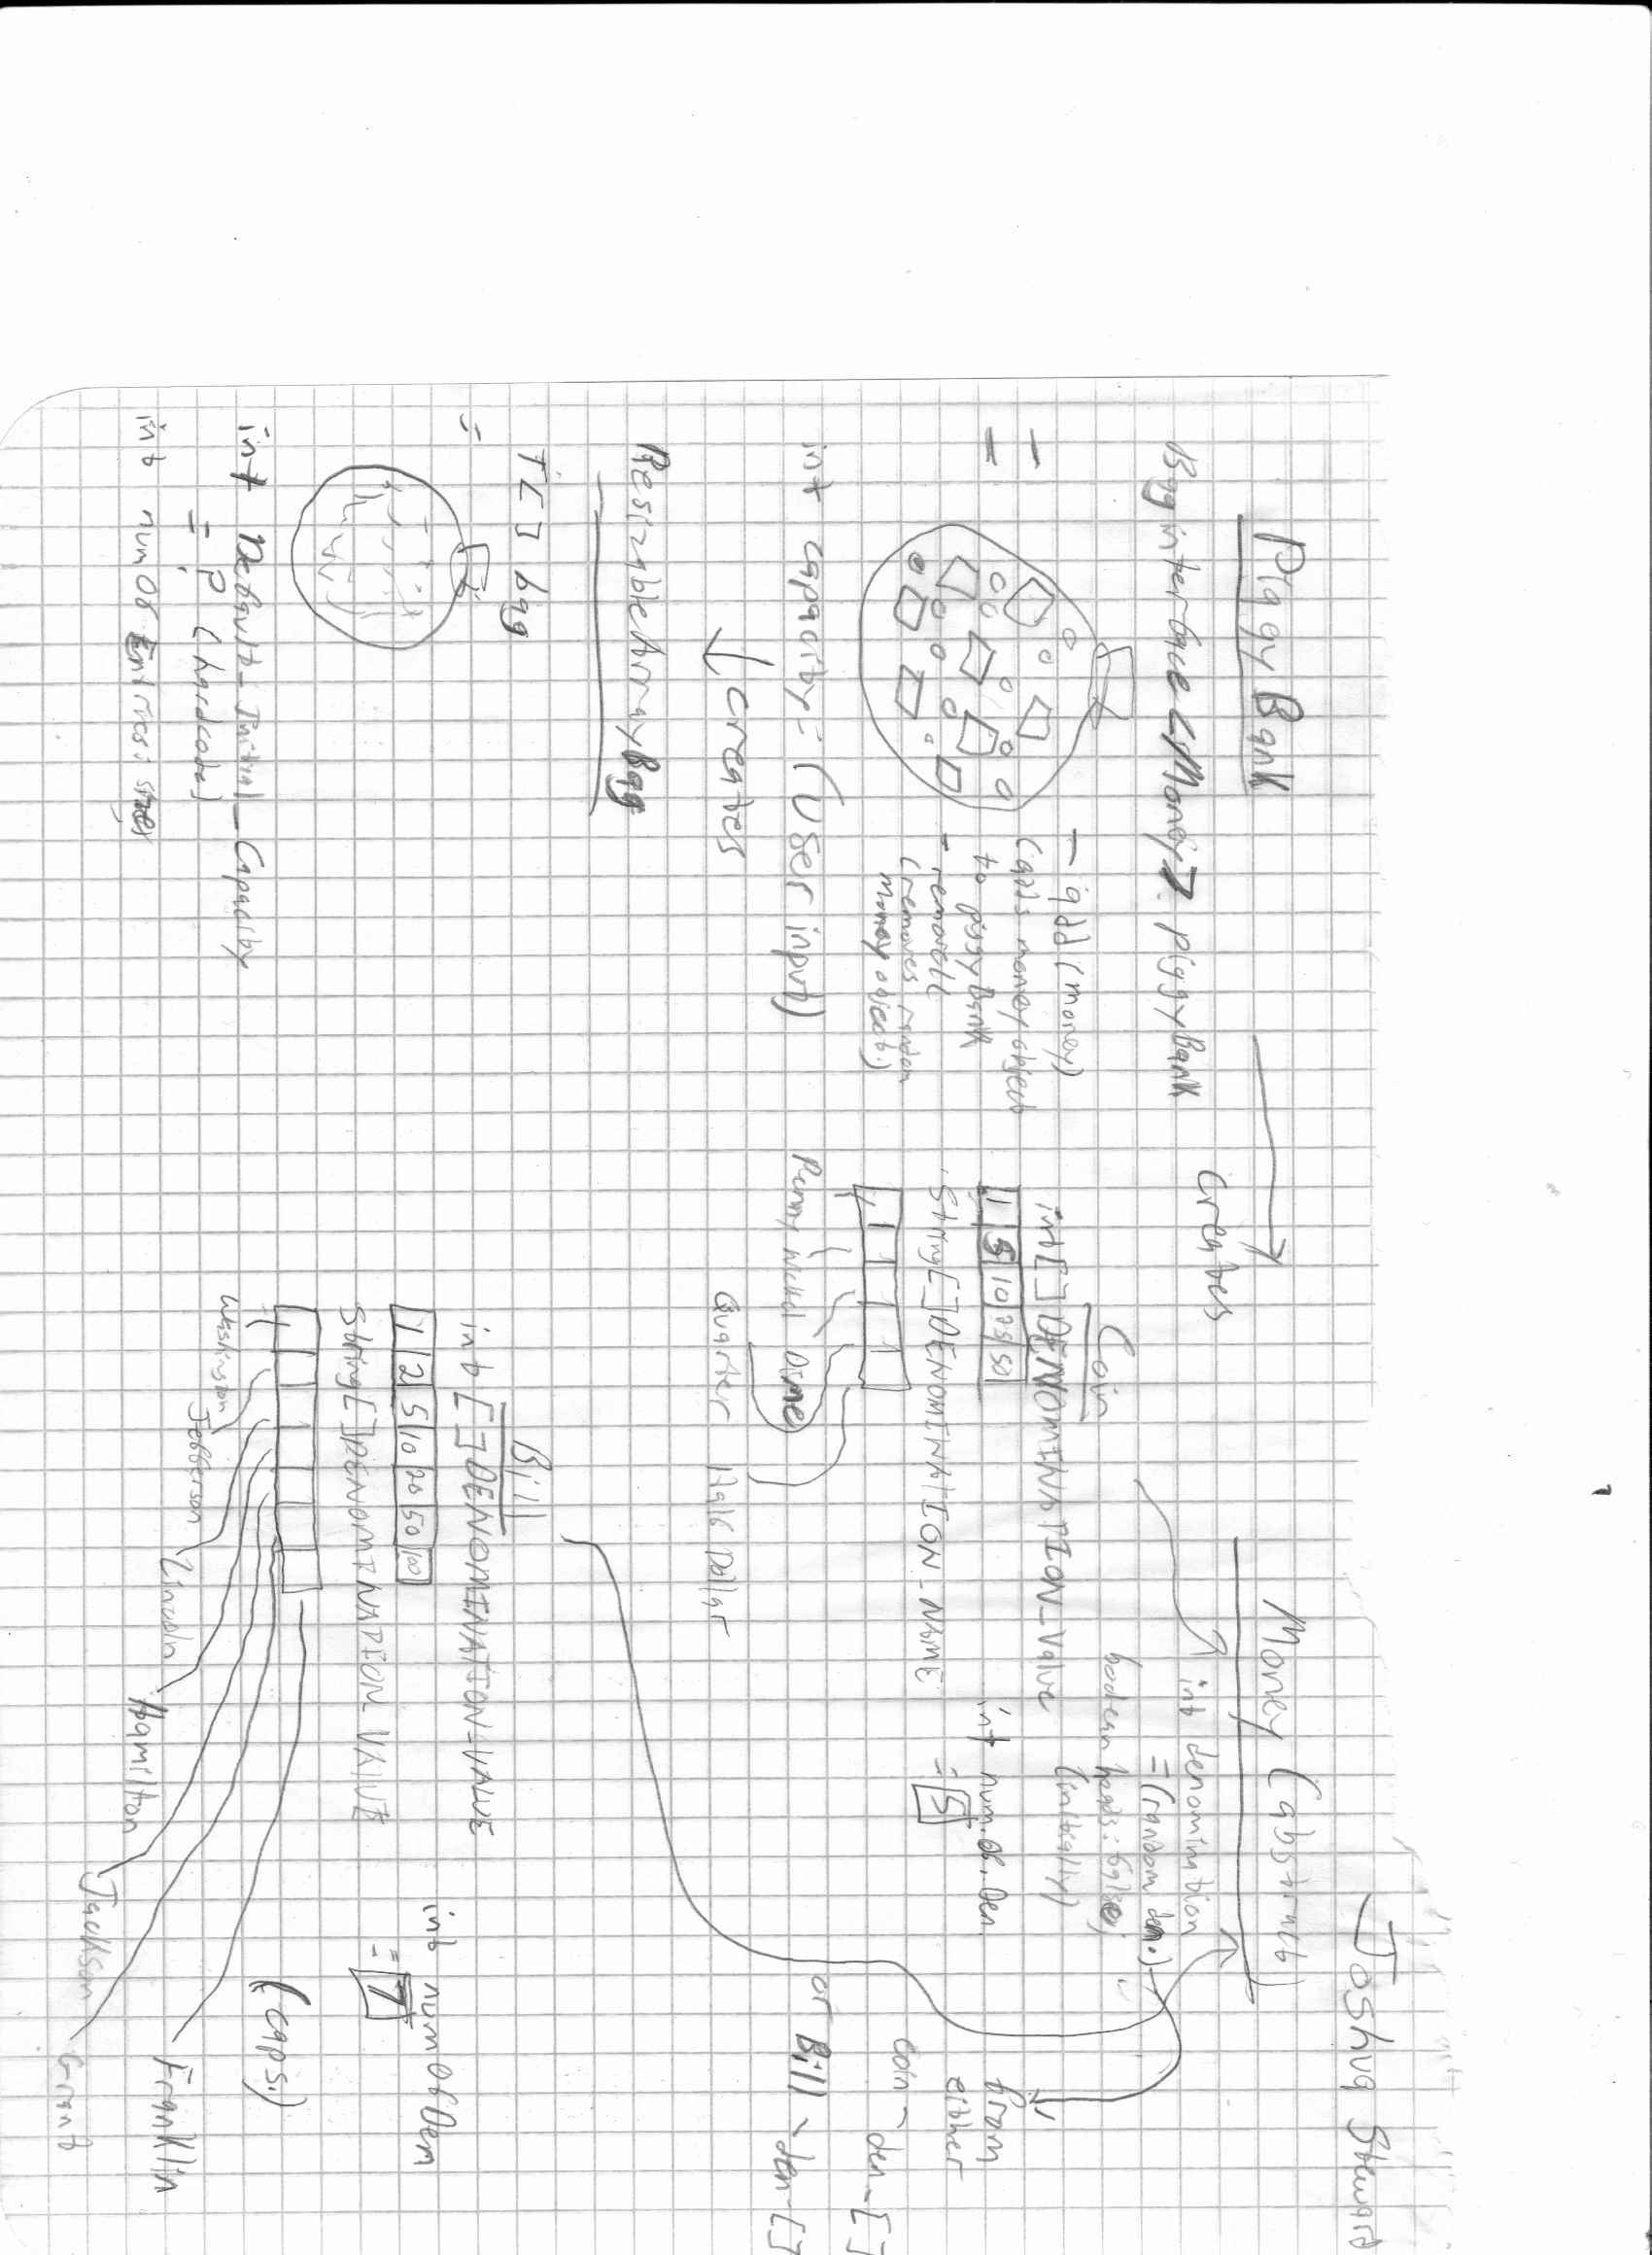 Joshua Steward
PiggyBank
Baginterface<Money>: piggyBank
- add(money)
(adds money object
to piggyBank
- remove((
(removes random
money object.)
int capacity = (User input)
creates
ResizableArrayBag
T[] bag
=
int Default_Initial_Capacity
= ? (hardcode)
int numOfEntries:
creates
Money (abstract)
int denomination
= (random den.)
boolean heads: false;
(initially)
from
either
coin - den-[]
or Bill - den-[]
Coin
int[] DENOMINATION_Value
1 5 10 25 50
String[] DENOMINATION_NAME
Penny Nickel Dime
Quarter Half Dollar
int num.Of.Den
= 5
Bill
int[] DENOMINATION_VALUE
1 2 5 10 20 50 100
String[] DENOMINATION VALUE
Washington
Jefferson
Lincoln
Hamilton
Jackson
Grant
Franklin
int numOfDem
= 7
(caps.)